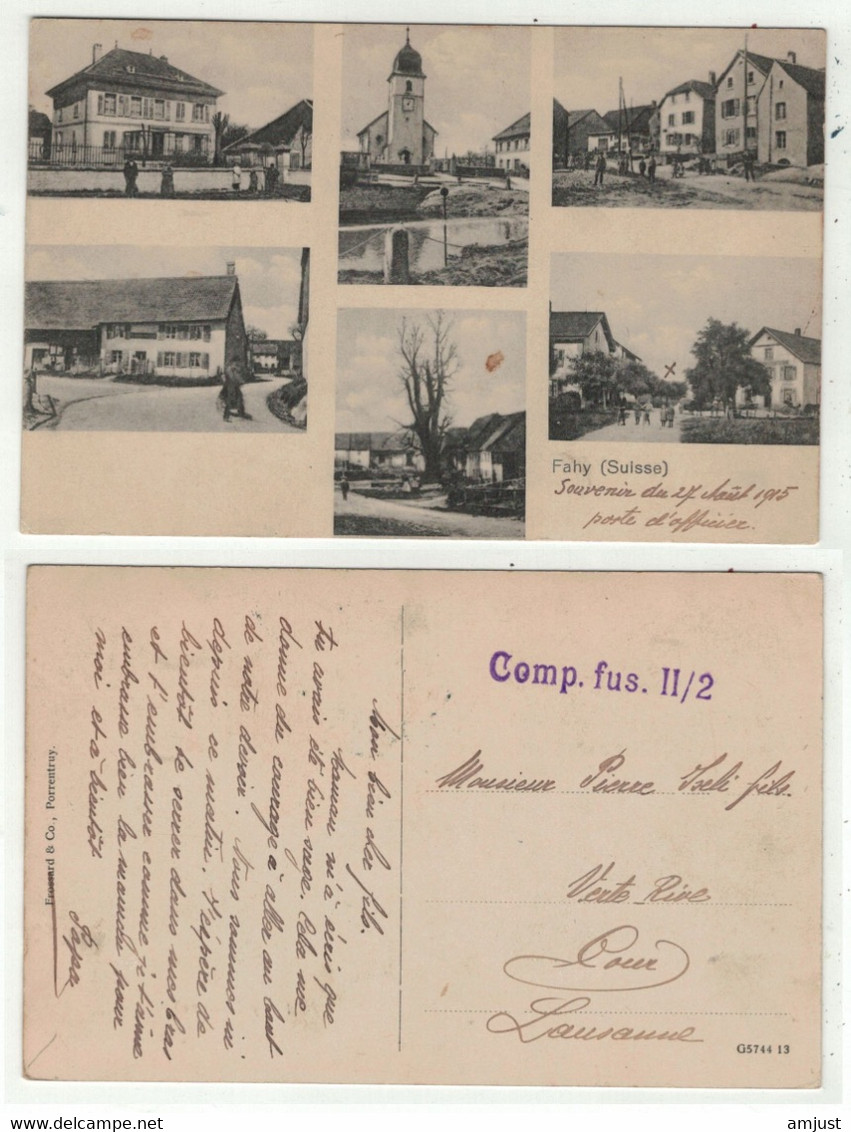 Fahy (Suisse)
Souvenir du 27 Août 1915
poste d'officier.
Comp. fus. II/2
Monsieur Pierre Iseli fils.
Verte Rive
Cour
Lausanne
G5744 13
Mon bien cher fils.
Maman m'a écris que
tu avais été bien sage. Cela me
donne du courage à aller au bout
de notre devoir. Nous sommes ici
depuis ce matin. J'espère de
bientôt te serrer dans mes bras
et t'embrasser comme je t'aime
embrasse bien la maman pour
moi et à bientôt
Papa
Frossard & Co., Porrentruy.
amjust
amjust